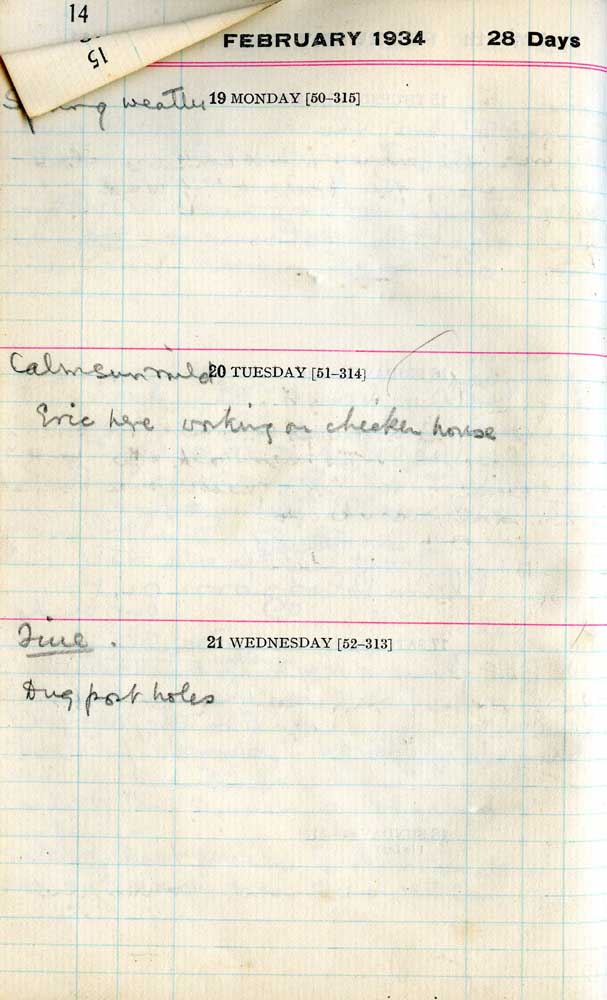 14
15
FEBRUARY 1934 28 Days
Spring weather 19 MONDAY [50–315]
Calm sun mild 20 TUESDAY [51–314]
Eric here working on chicken house
Fine. 21 WEDNESDAY [52–313]
Dug post holes